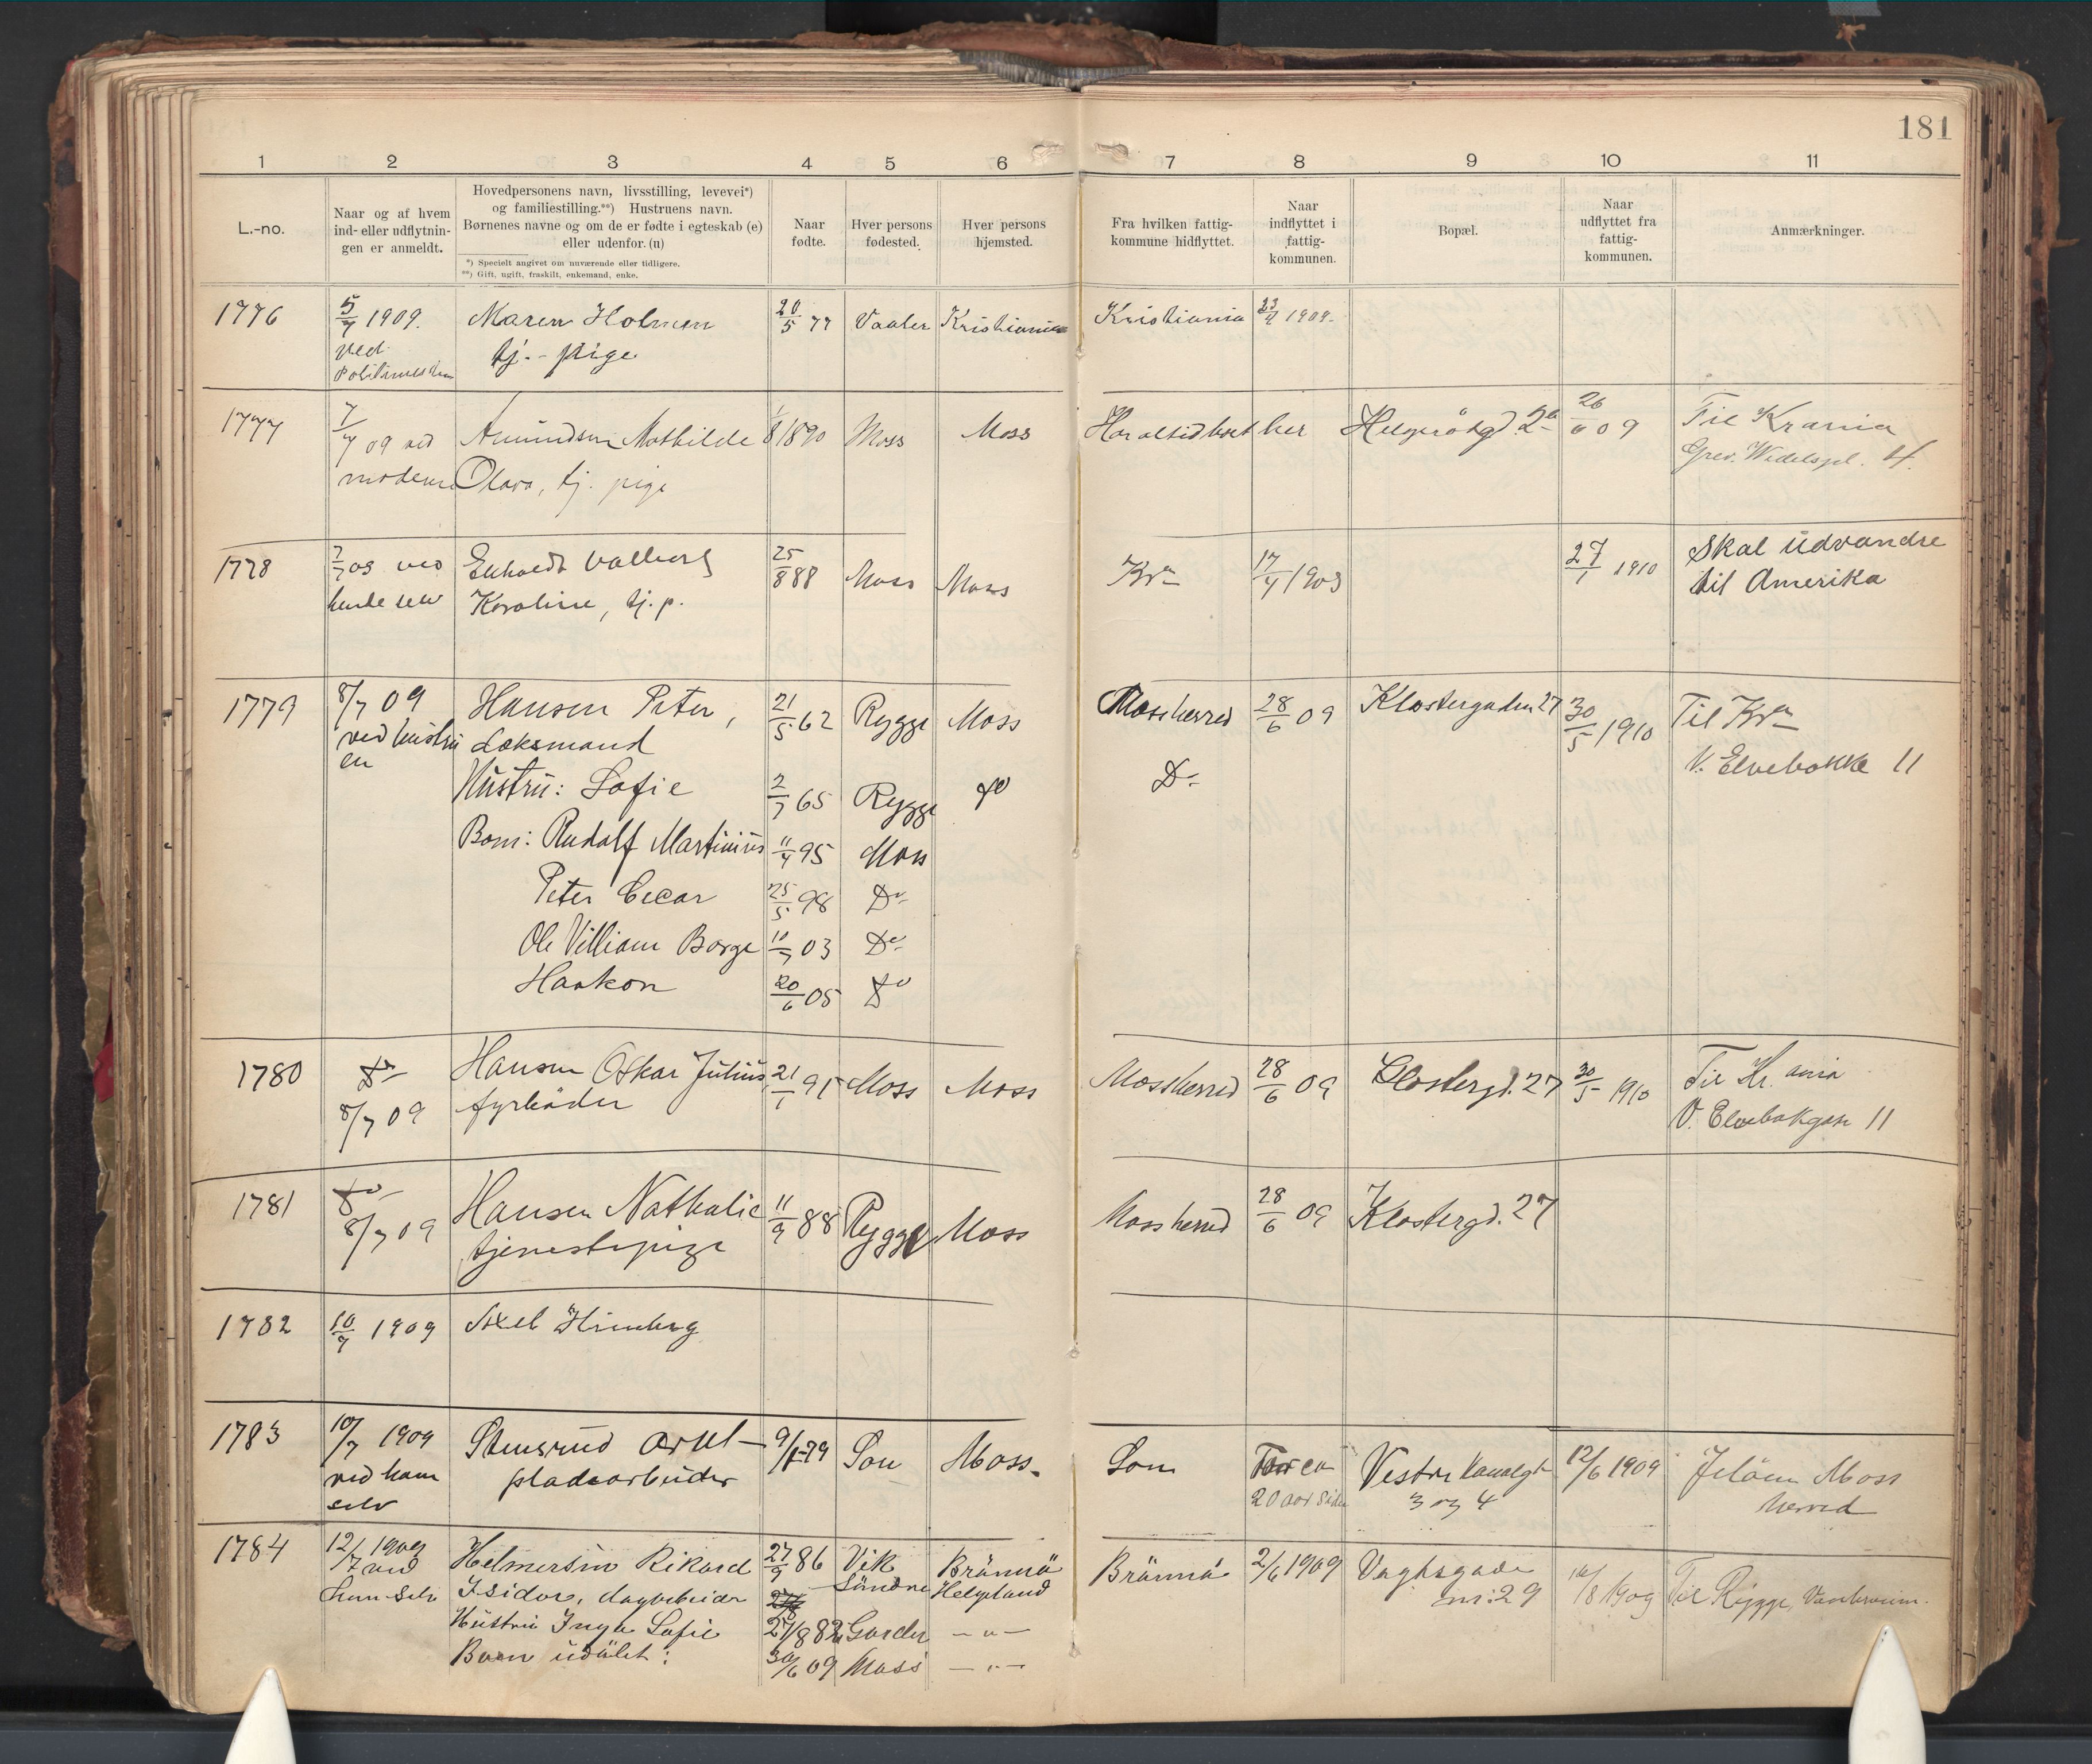 181
1 2 3 4 5 6 7 8 9 10 11
L.-no.
Naar og af hvem
ind- eller udflytnin-
gen er anmeldt.
Hovedpersonens navn, livsstilling, levevei*)
og familiestilling.**) Hustruens navn.
Børnenes navne og om de er fødte i egteskab (e)
eller udenfor. (u)
*) Specielt angivet om nuværende eller tidligere.
**) Gift, ugift, fraskilt, enkemand, enke.
Naar
fødte.
Hver persons
fødested.
Hver persons
hjemsted.
Fra hvilken fattig-
kommune hidflyttet.
Naar
indflyttet i
fattig-
kommunen.
Bopæl.
Naar
udflyttet fra
fattig-
kommunen.
Anmærkninger.
1776 5/7 1909. Maren Holmen 20/5 77 Vaaler Kristiania Kristiania 23/4 1909.
ved tj. - pige
1777 7/7 09 ved Amundsen Mathilde 1/8 1890 Moss Moss Har altid boet her 26/6 09 Til Krania
moderen Olava, tj. pige Grev. Wedelspl. 4.
1778 7/7 09 ved Valborg 25/8 88 Moss Moss Kra 17/4 1903 27/1 1910 Skal udvandre
hende selv Karoline, tj. p. til Amerika
1779 8/7 09 Hansen Peter, 21/5 62 Rygge Moss Mossherred 28/6 09 Klostergaden 27 30/5 1910 Til Kra
ved hustru Laksmand V. Elvebakke 11
en
Hustru: Sofie 2/7 65 Rygge Do Do
Børn: Rudolf Martinius 11/4 95 Moss
Peter Oscar 25/5 98 Do
Ole Villiam Borge 10/7 03 Do
Haakon 20/6 05 Do
1780 Do Hansen Oskar Julius 21/1 91 Moss Moss Mossherred 28/6 09 Klostergd. 27 30/5 1910 Til Kr. ania
8/7 09 fyrbøder V. Elvebakgen 11
1781 Do Hansen Nathalie 11/9 88 Rygge Moss Mossherred 28/6 09 Klostergd. 27
8/7 09 tjenestepige
1782 10/7 1909 Axel Himberg
1783 10/7 1909 Stensrud Axel - 9/1-79 Son Moss. Son For ca Vestre Kanalgt 12/6 1909 Jeløen Moss
ved ham pladsarbeider 20 aar siden 3 og 4 herred
selv
1784 12/7 1909 Helmersen Rikard 27/9 86 Vik Brönnö Brönnö 2/6 1909 Vagtsgade 10/8 1909 Til Rygge,
ved
ham selv Isidor, dagarbeider Söndre Helgeland nr: 29
Hustru Inga Sofie 27/8 82 Garder - " -
Barn udøbt: 30/6 09 Moss - " -